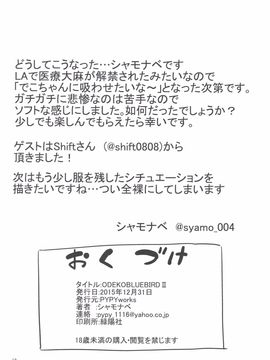 どうしてこうなった…シャモナベです
LAで医療大麻が解禁されたみたいなので
「でこちゃんに吸わせたいな～」となった次第です。
ガチガチに悲惨なのは苦手なので
ソフトな感じにしました。如何だったでしょうか？
少しでも楽しんでもらえたら幸いです。
ゲストはShiftさん （@shift0808)から
頂きました！
次はもう少し服を残したシチュエーションを
描きたいですね…つい全裸にしてしまいます
シャモナベ @syamo_004
おくづけ
タイトル:ODEKOBLUEBIRDⅡ
発行日:2015年12月31日
発行元:PYPYworks
著者 :シャモナベ
連絡 :pypy_1116@yahoo.co.jp
印刷所:緑陽社
18歳未満の購入・閲覧を禁じます